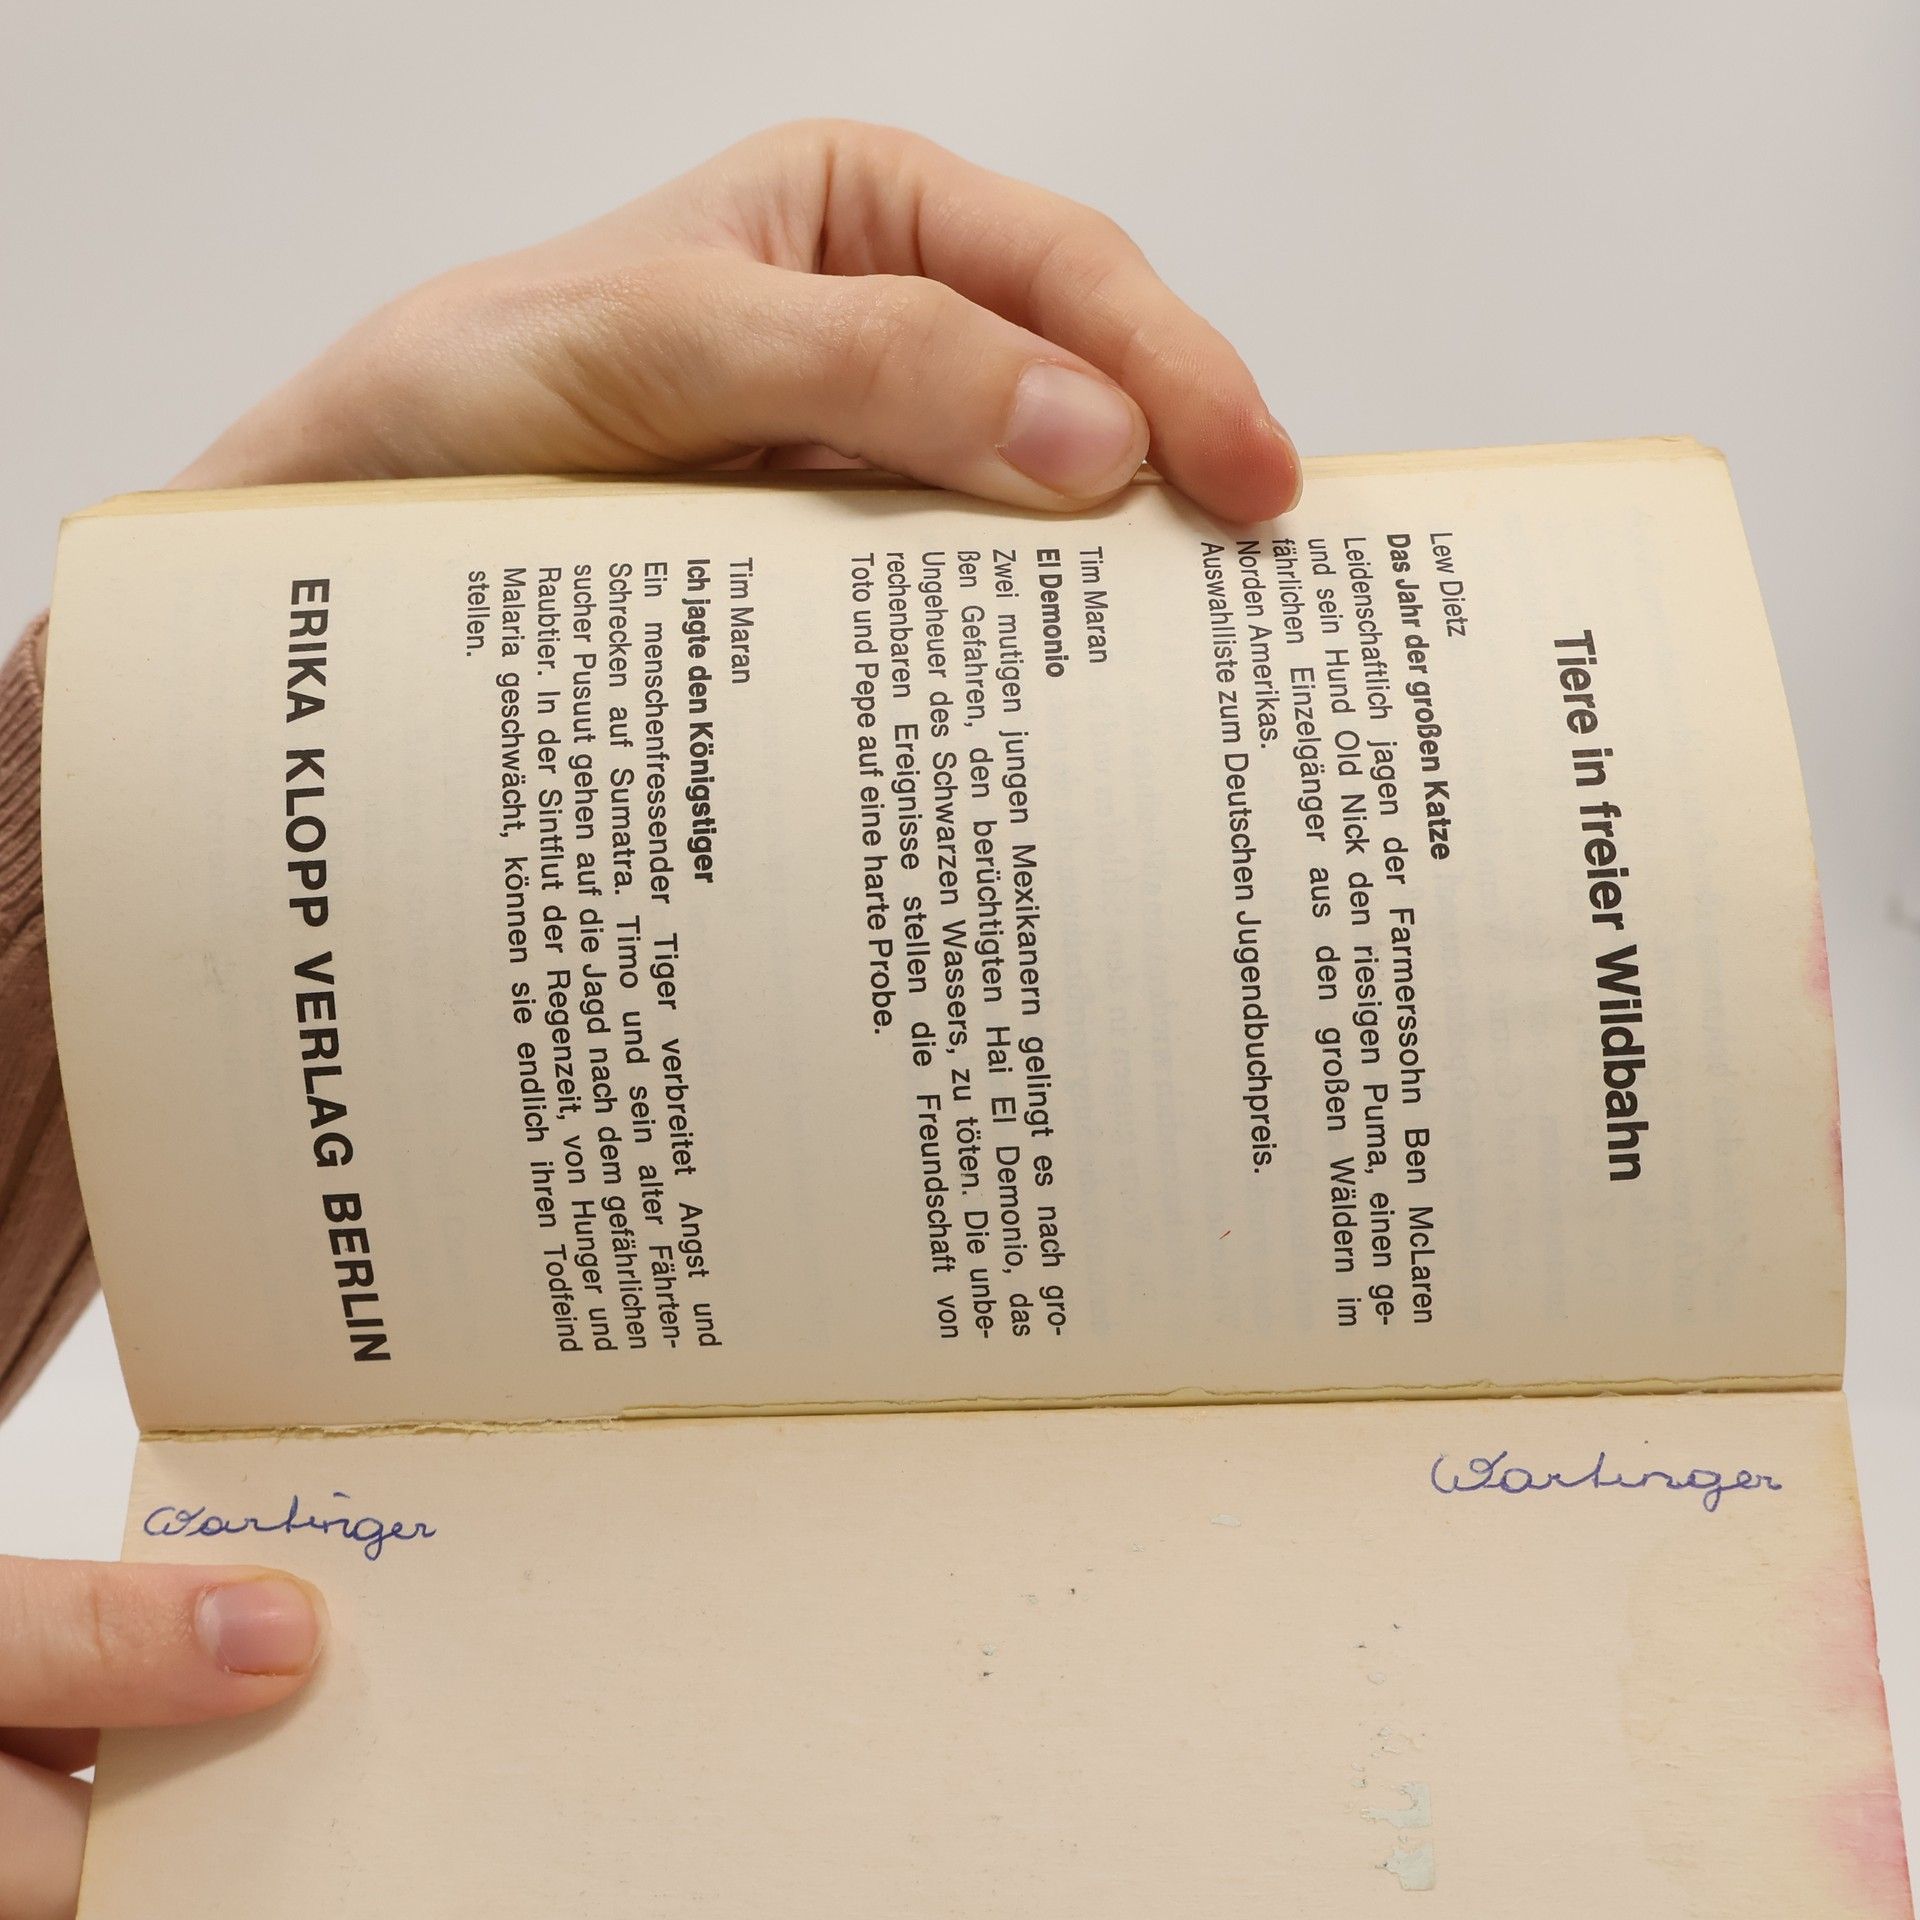 Tiere in freier Wildbahn
Lew Dietz
Das Jahr der großen Katze
Leidenschaftlich jagen der Farmerssohn Ben McLaren
und sein Hund Old Nick den riesigen Puma, einen ge-
fährlichen Einzelgänger aus den großen Wäldern im
Norden Amerikas.
Auswahlliste zum Deutschen Jugendbuchpreis.
Tim Maran
El Demonio
Zwei mutigen jungen Mexikanern gelingt es nach gro-
ßen Gefahren, den berüchtigten Hai El Demonio, das
Ungeheuer des Schwarzen Wassers, zu töten. Die unbe-
rechenbaren Ereignisse stellen die Freundschaft von
Toto und Pepe auf eine harte Probe.
Tim Maran
Ich jagte den Königstiger
Ein menschenfressender Tiger verbreitet Angst und
Schrecken auf Sumatra. Timo und sein alter Fährten-
sucher Pusuut gehen auf die Jagd nach dem gefährlichen
Raubtier. In der Sintflut der Regenzeit, von Hunger und
Malaria geschwächt, können sie endlich ihren Todfeind
stellen.
ERIKA KLOPP VERLAG BERLIN
Wartinger
Wartinger